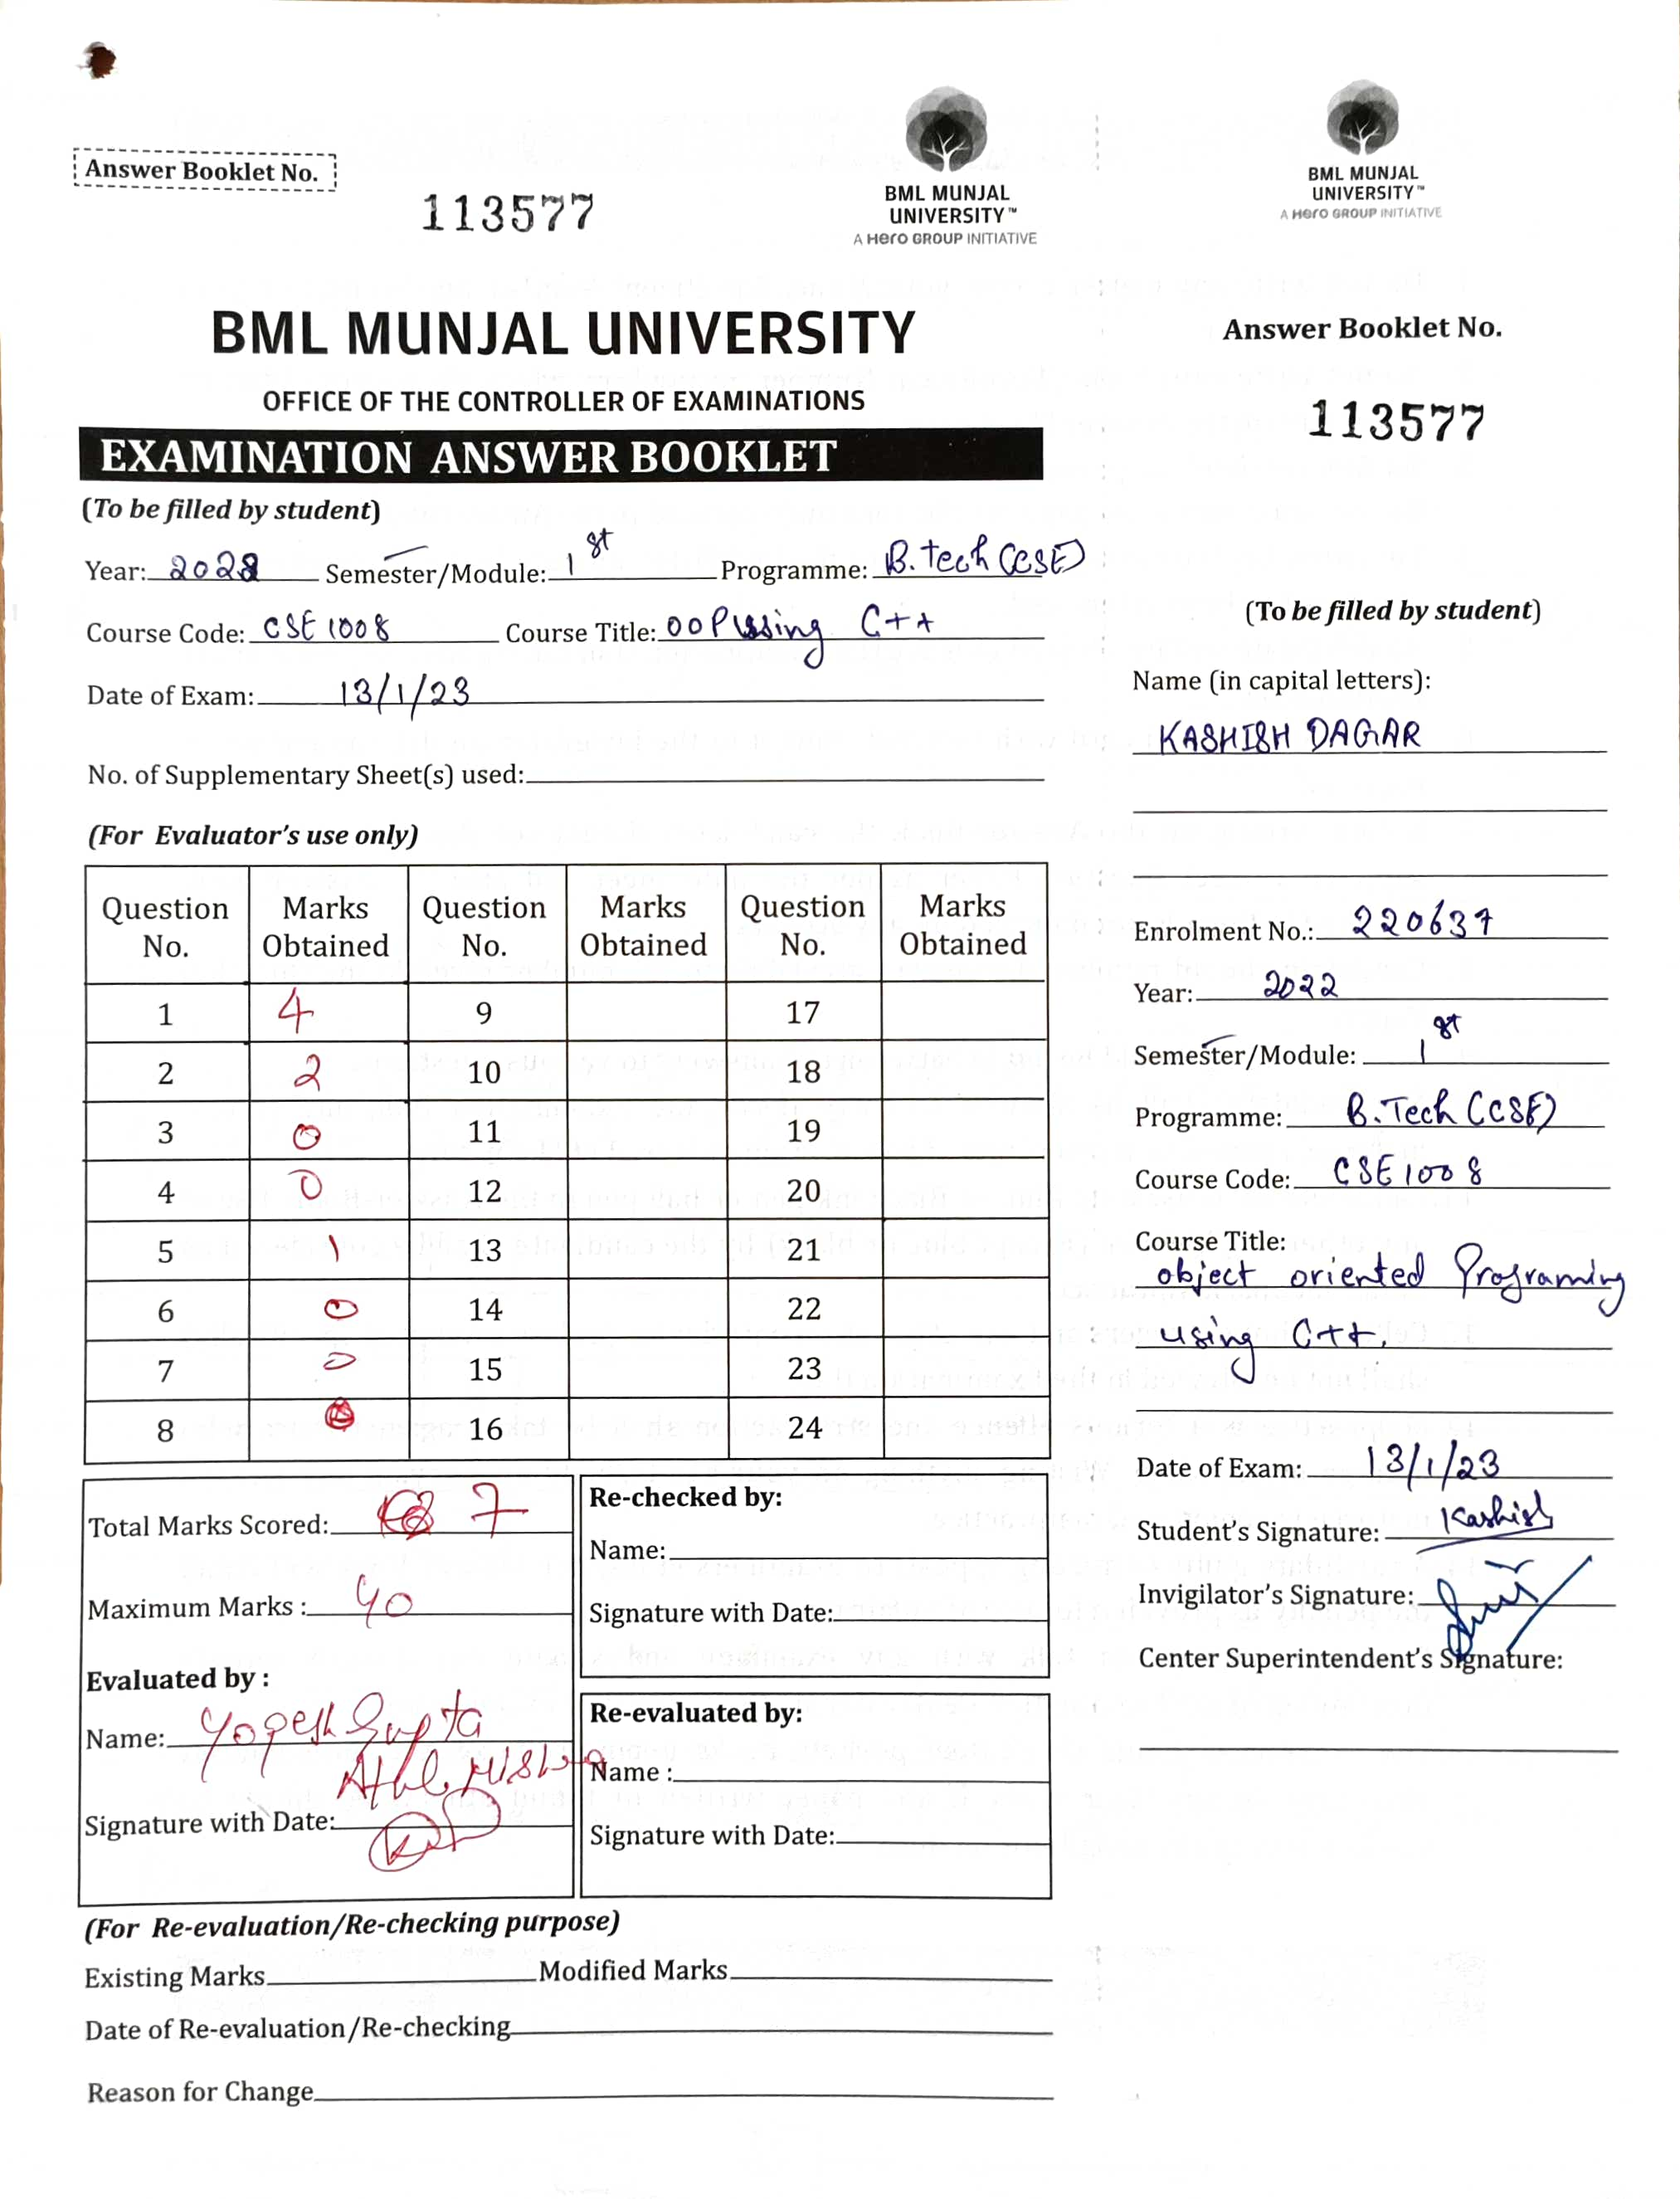 Answer Booklet No.
113577
BML MUNJAL
UNIVERSITY™
A Hero GROUP INITIATIVE
BML MUNJAL UNIVERSITY
OFFICE OF THE CONTROLLER OF EXAMINATIONS
EXAMINATION ANSWER BOOKLET
(To be filled by student)
Year: 2022 Semester/Module: 1st Programme: B.tech (CSE)
Course Code: CSE1008 Course Title: OOP using C++
Date of Exam: 13/1/23
No. of Supplementary Sheet(s) used:
(For Evaluator's use only)
Question No. Marks Obtained Question No. Marks Obtained Question No. Marks Obtained
1 4 9 17
2 2 10 18
3 0 11 19
4 0 12 20
5 1 13 21
6 0 14 22
7 0 15 23
8 16 24
Total Marks Scored: 7
Maximum Marks : 40
Evaluated by :
Name: Yogesh Gupta
Signature with Date:
Re-checked by:
Name:
Signature with Date:
Re-evaluated by:
Name :
Signature with Date:
(For Re-evaluation/Re-checking purpose)
Existing Marks Modified Marks
Date of Re-evaluation/Re-checking
Reason for Change
BML MUNJAL
UNIVERSITY™
A Hero GROUP INITIATIVE
Answer Booklet No.
113577
(To be filled by student)
Name (in capital letters):
KASHISH DAGAR
Enrolment No.: 220637
Year: 2022
Semester/Module: 1st
Programme: B.Tech (CSE)
Course Code: CSE1008
Course Title:
object oriented Programing
using C++.
Date of Exam: 13/1/23
Student's Signature: Kashish
Invigilator's Signature:
Center Superintendent's Signature: